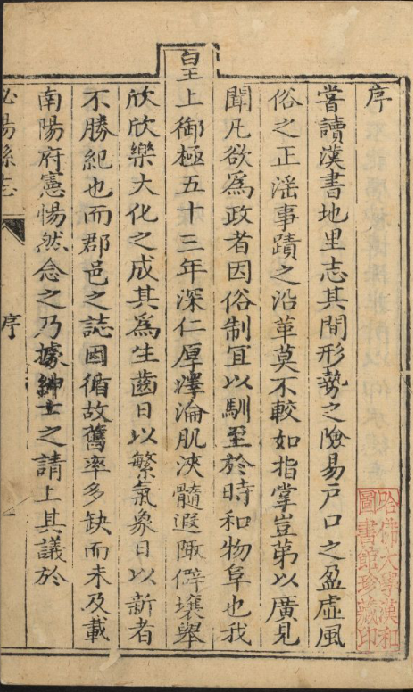 序
嘗讀漢書地里志其間形勢之險易戶口之盈虛風
俗之正滛事蹟之沿革莫不較如指掌豈第以廣見
聞凡欲爲政者因俗制宜以馴至於時和物阜也我
皇上御極五十三年深仁厚澤淪肌浹髓遐陬僻壤舉
欣欣樂大化之成其爲生齒日以繁氣象日以新者
不勝紀也而郡邑之誌因循故舊率多缺而未及載
南陽府憲惕然念之乃據紳士之請上其議於
泌陽縣志
序
哈佛大學漢和
圖書館珍藏印